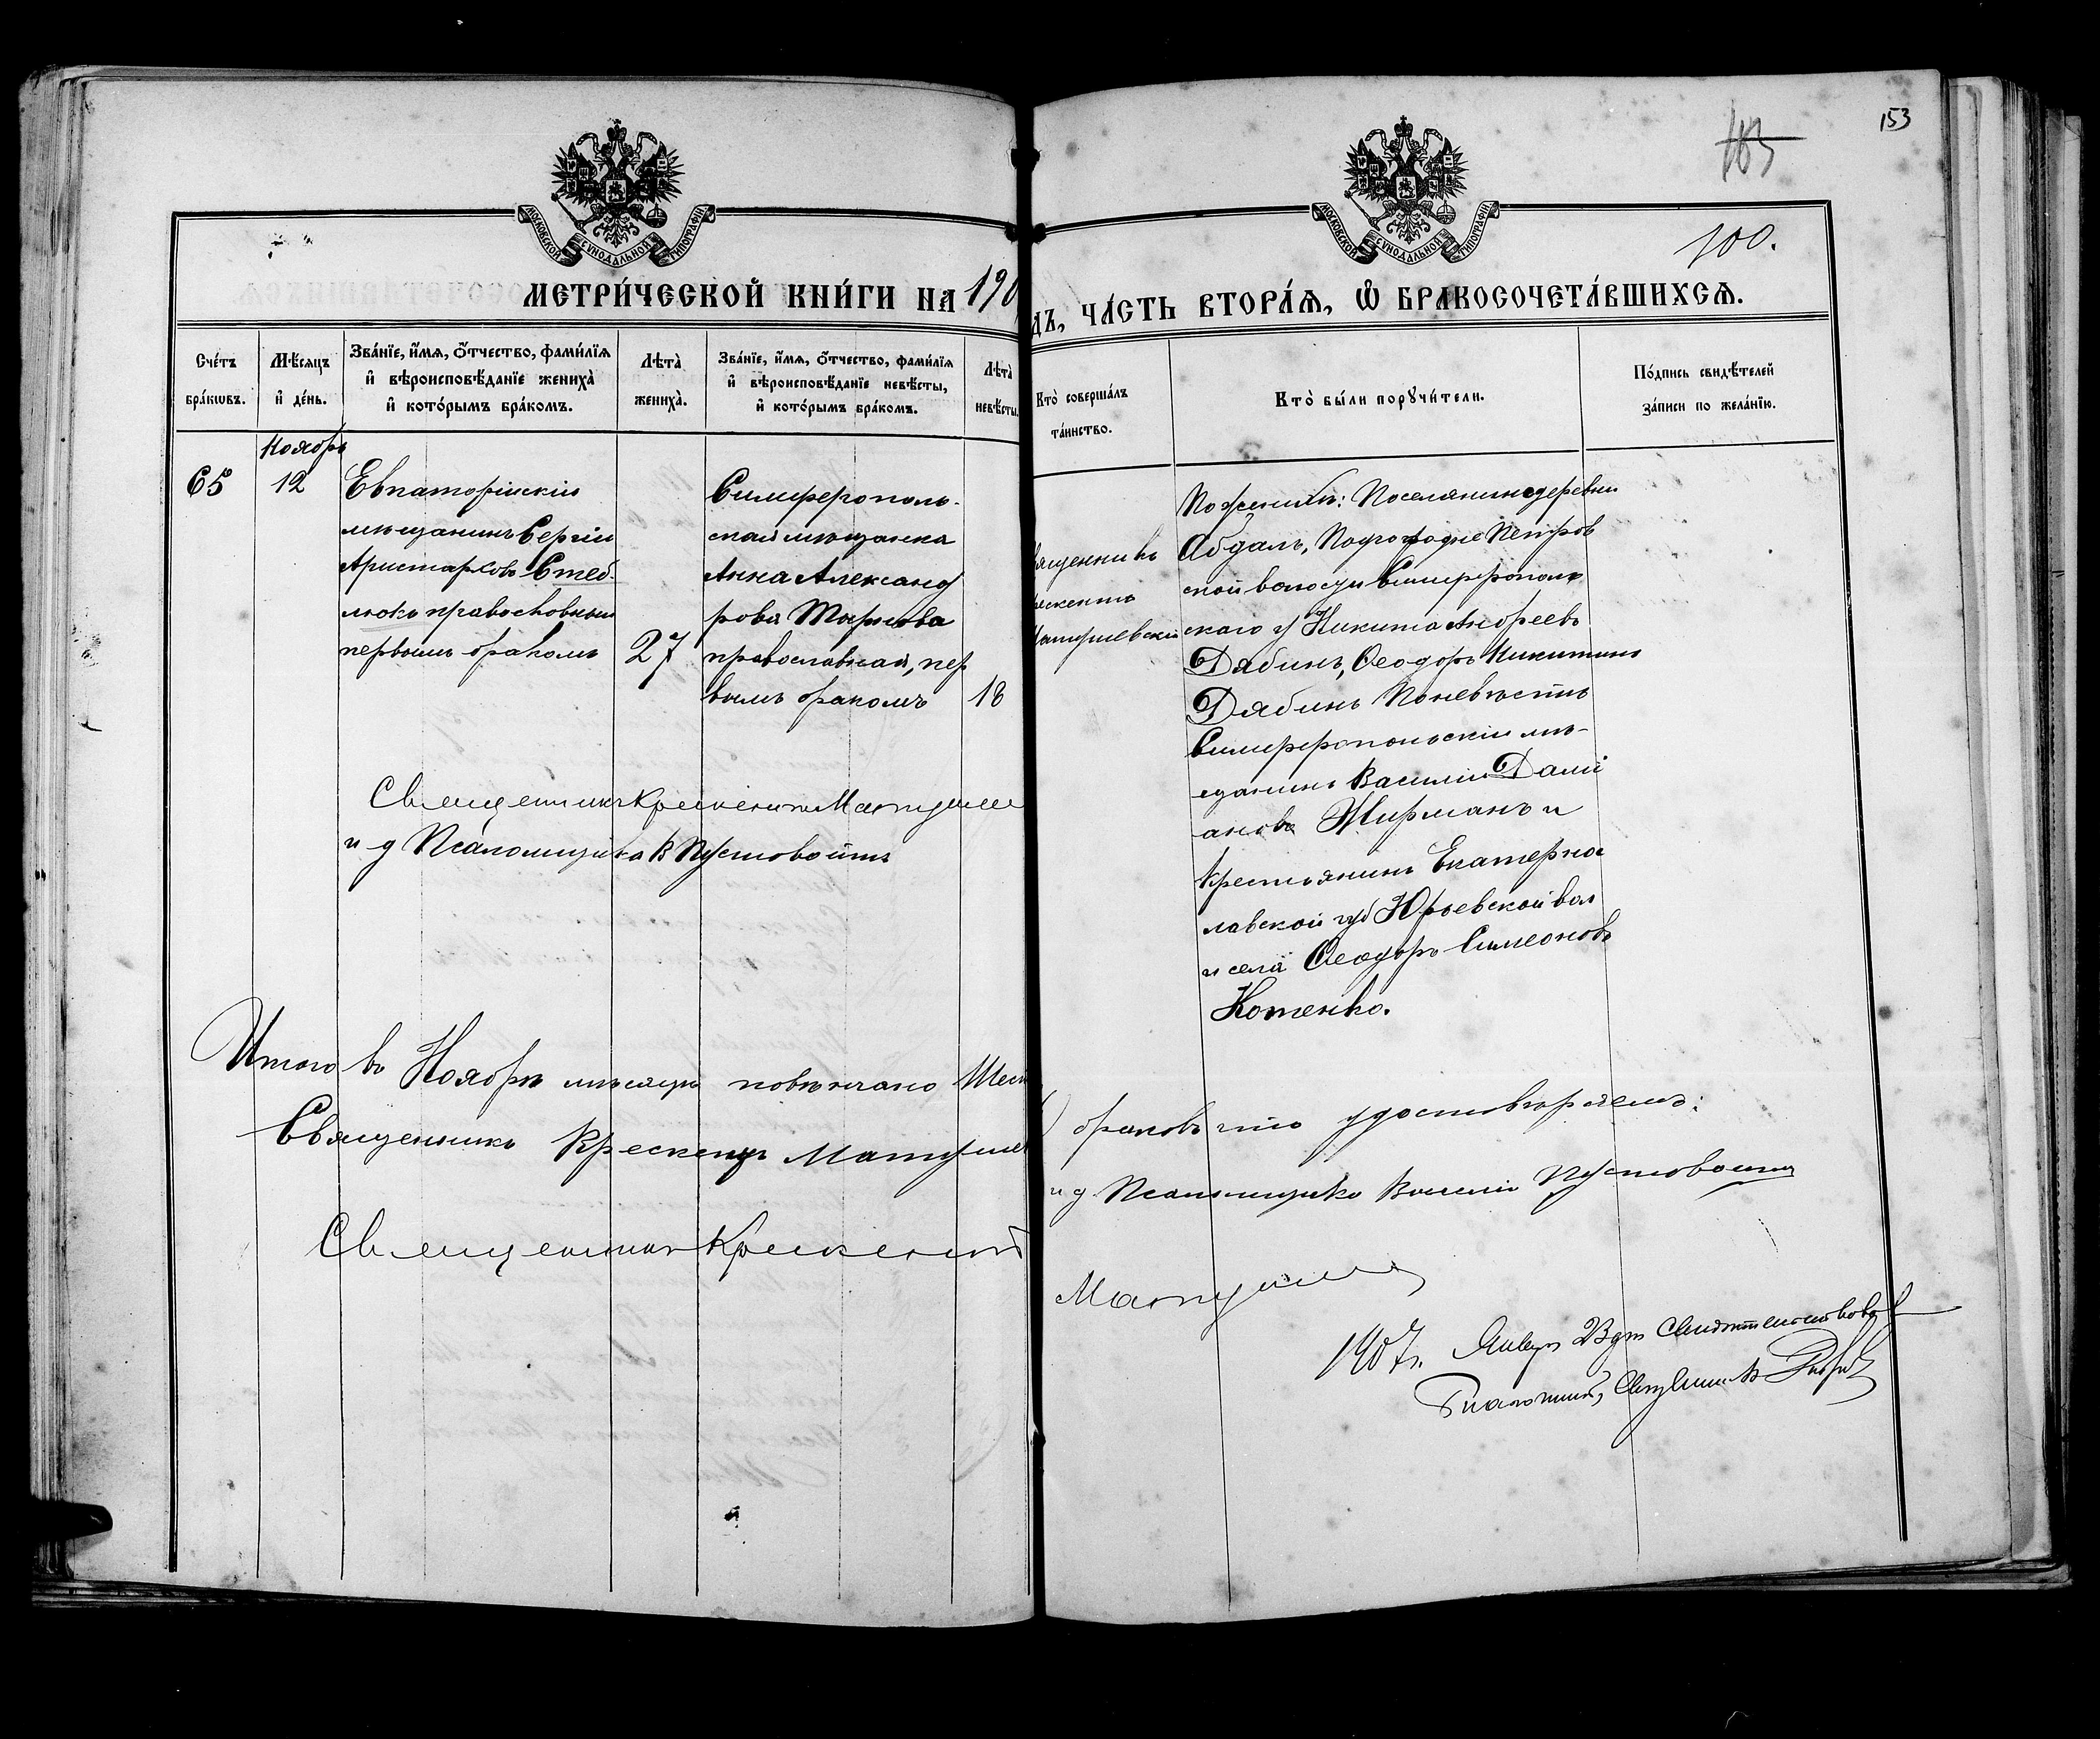 153
103
100.
МОСКОВСКОЙ СѴНОДАЛЬНОЙ ТИПОГРАФІИ
МОСКОВСКОЙ СѴНОДАЛЬНОЙ ТИПОГРАФІИ
МЕТРИ́ЧЕСКОЙ КНИ́ГИ НА 190
ДЪ, ЧА́СТЬ ВТОРА́Я, Ѡ҆ БРАКОСОЧЕТА́ВШИХСЯ.
Сче́тъ бра́кѡвъ.
Мѣ́сяцъ и҆ де́нь.
Зва́нїе, и҆́мя, ѻ҆́тчество, фами́лїя
и҆ вѣроисповѣ́данїе жениха̀
и҆ кото́рымъ бра́комъ.
Лѣта̀ жениха̀.
Зва́нїе, и҆́мя, ѻ҆́тчество, фами́лїя
и҆ вѣроисповѣ́данїе невѣ́сты,
и҆ кото́рымъ бра́комъ.
Лѣта̀ невѣ́сты.
Кто̀ соверша́лъ
та́инство.
Кто̀ бы́ли порꙋчи́тели.
По́дпись свидѣ́телей
за́писи по жела́нїю.
Ноябрь
65
12
Евпаторійскій
мѣщанинъ Сергій
Аристарховъ Стеб-
люкъ православный
первымъ бракомъ
27
Симферополь-
ская мѣщанка
Анна Александ
рова
православная, пер
вымъ бракомъ
18
вященникъ
рескентъ
Матушевскій
По женихѣ: Поселянинъ деревни
Абдалъ, Подгородне Петров
ской волости Симферополь
скаго у Никита Андреевъ
Дябинъ, Ѳеодоръ Никитинъ
Дябинъ По невѣстѣ
Симферопольскій мѣ-
щанинъ Василій Даміа
ановъ Жирманъ и
крестьянинъ Екатерино
лавской губ Юрьевской вол
и села Ѳеодоръ Симеоновъ
Котенко.
Священникъ Крискентъ Матуше
и д Псаломщика В Пустовойтъ
Итого въ Ноябрѣ мѣсяцѣ повѣнчано Шест
) браковъ что удостовѣряемъ:
Священникъ Крескентъ Матуше
и д Псаломщика Василій Пустовойтъ
Священникъ Крискентъ
Матуше
1907 г. Января 23 дня свидѣтельствовалъ
Благочинный, Священникъ